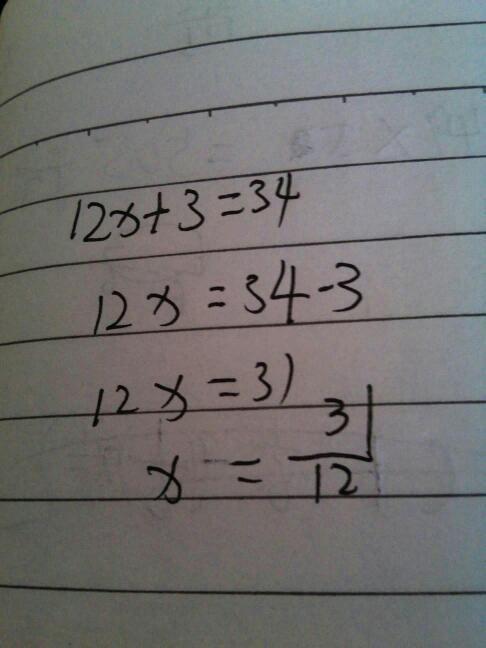 12x+3=34
12x=34-3
12x=31
x=31/12